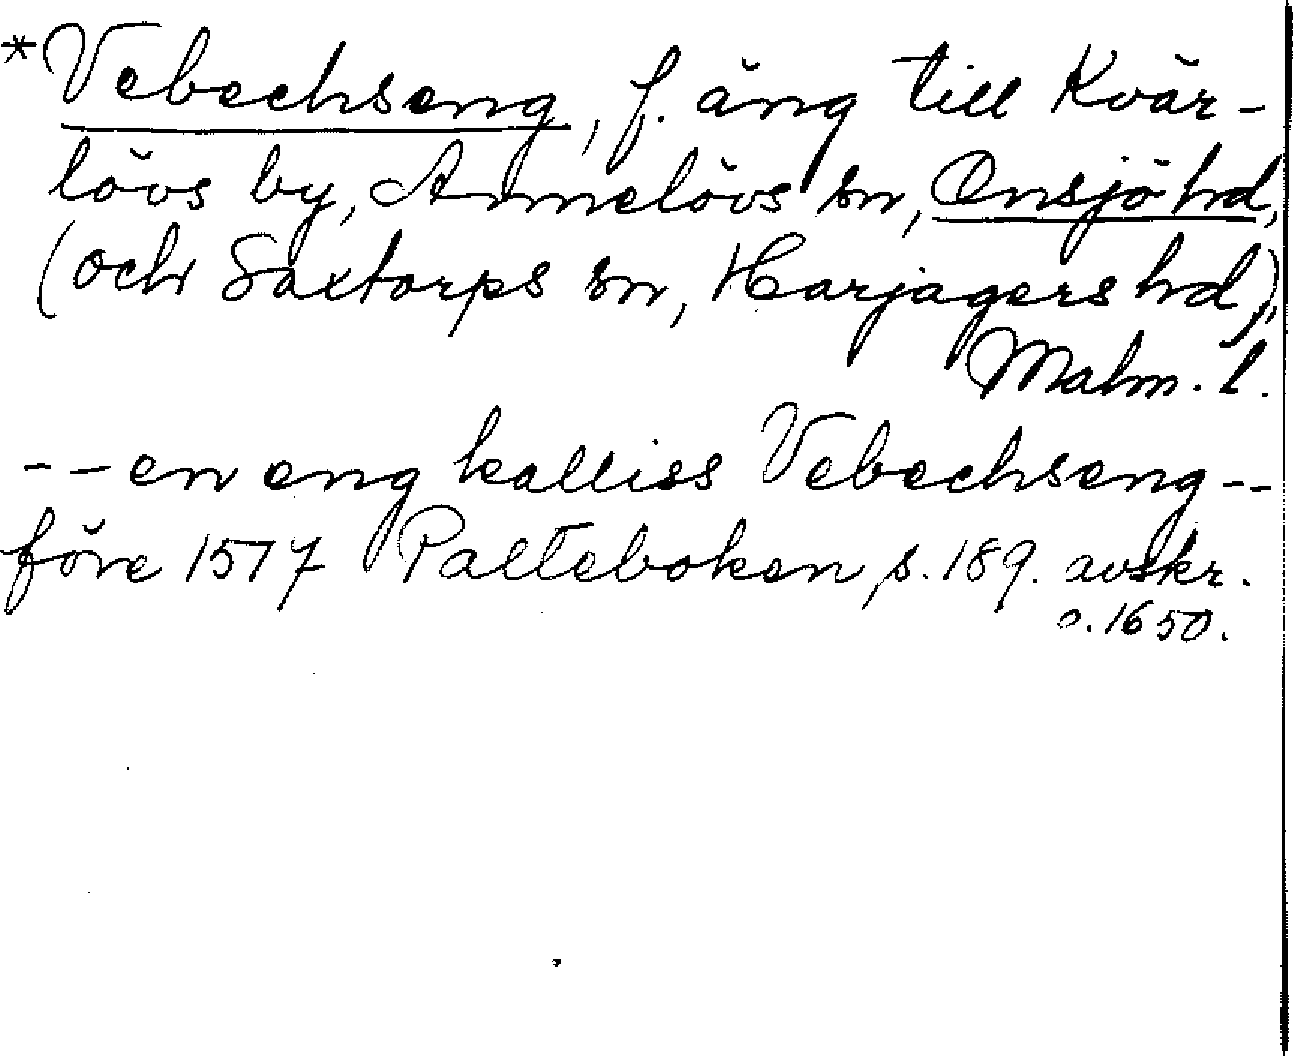 *Vebechseng, f. äng till Kvär-
lövs by, Annelövs sn, Onsjö hd,
(och Saxtorps sn, Harjagers hd),
Malm. l.
-- en eng kalliss Vebechseng --
före 1517 Palteboken, s. 189. avskr.
o. 1650.